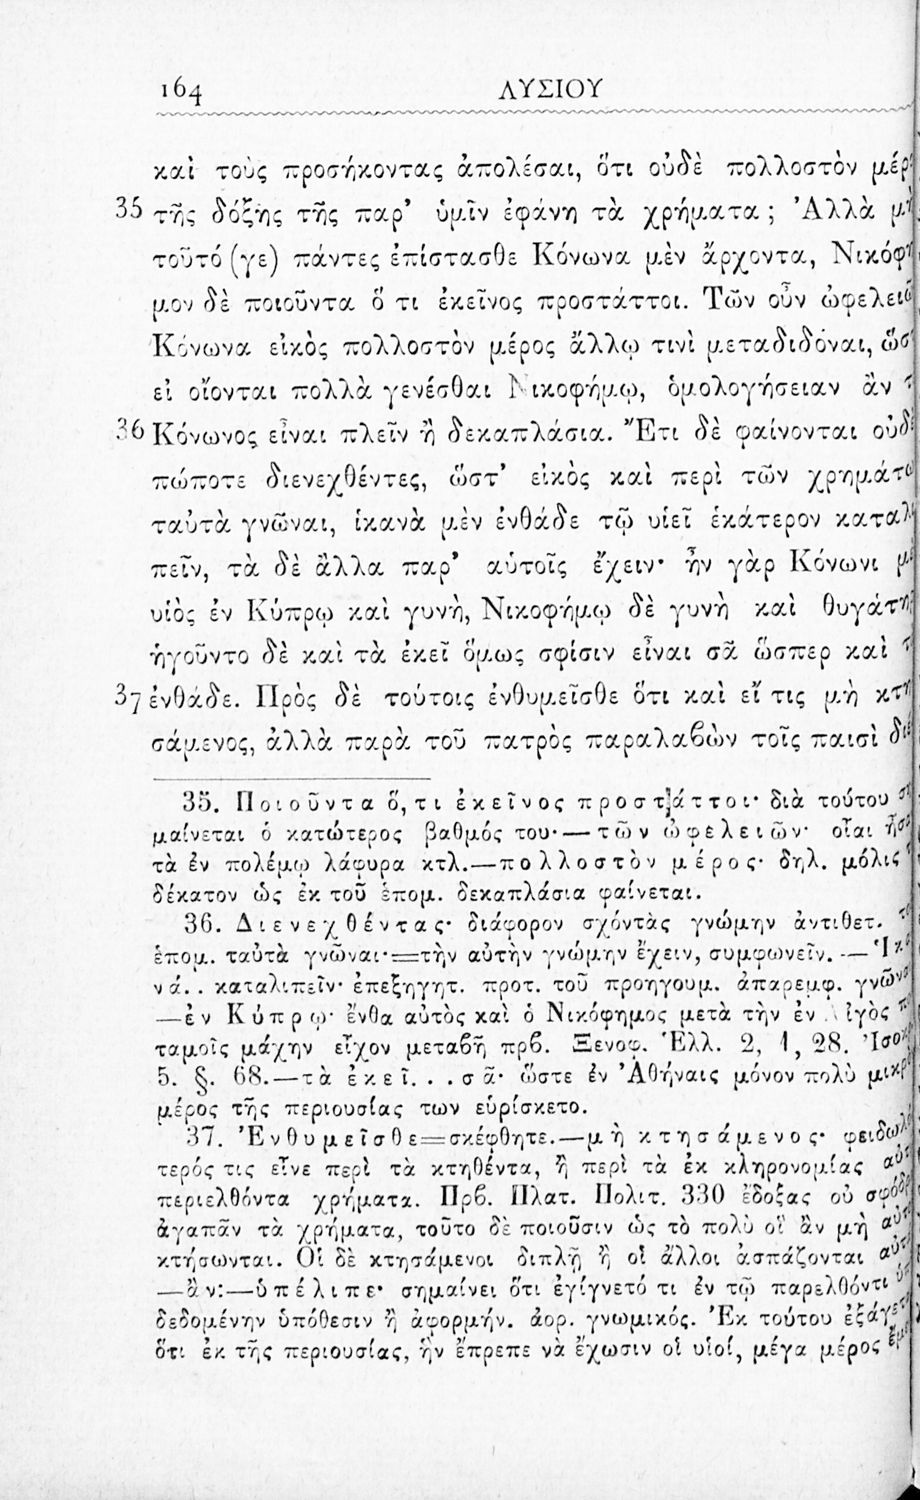 164 ΛΥΣΙΟΥ
καὶ τοὺς προσήκοντας ἀπολέσαι, ὅτι οὐδὲ πολλοστὸν
35 τῆς δόξης τῆς παρ' ὑμῖν ἐφάνη τὰ χρήματα; Ἀλλὰ
τοῦτό (γε) πάντες ἐπίστασθε Κόνωνα μὲν ἄρχοντα,
μον δὲ ποιοῦντα ὅ τι ἐκεῖνος προστάττοι. Τῶν οὖν
Κόνωνα εἰκὸς πολλοστὸν μέρος ἄλλῳ τινὶ μεταδιδόναι,
εἰ οἴονται πολλὰ γενέσθαι Νικοφήμῳ, ὁμολογήσειαν ἂν
36 Κόνωνος εἶναι πλεῖν ἢ δεκαπλάσια. Ἔτι δὲ φαίνονται
πώποτε διενεχθέντες, ὥστ' εἰκὸς καὶ περὶ τῶν
ταὐτὰ γνῶναι, ἱκανὰ μὲν ἐνθάδε τῷ υἱεῖ ἑκάτερον
πεῖν, τὰ δὲ ἄλλα παρ' αὑτοῖς ἔχειν· ἦν γὰρ Κόνωνι
υἱὸς ἐν Κύπρῳ καὶ γυνή, Νικοφήμῳ δὲ γυνὴ καὶ
ἡγοῦντο δὲ καὶ τὰ ἐκεῖ ὅμως σφίσιν εἶναι σᾶ ὥσπερ καὶ
37 ἐνθάδε. Πρὸς δὲ τούτοις ἐνθυμεῖσθε ὅτι καὶ εἴ τις μὴ
σάμενος, ἀλλὰ παρὰ τοῦ πατρὸς παραλαβὼν τοῖς παισὶ
35. Ποιοῦντα ὅ,τι ἐκεῖνος προστάττοι· διὰ τούτου
μαίνεται ὁ κατώτερος βαθμός του·—τῶν ὠφελειῶν· οἷαι
τὰ ἐν πολέμῳ λάφυρα κτλ.—πολλοστὸν μέρος· δηλ. μόλις
δέκατον ὡς ἐκ τοῦ ἑπομ. δεκαπλάσια φαίνεται.
36. Διενεχθέντας· διάφορον σχόντὰς γνώμην ἀντιθετ.
ἑπομ. ταὐτὰ γνῶναι·=τὴν αὐτὴν γνώμην ἔχειν, συμφωνεῖν.—
νά.. καταλιπεῖν· ἐπεξηγητ. προτ. τοῦ προηγουμ. ἀπαρεμφ.
—ἐν Κύπρῳ· ἔνθα αὐτὸς καὶ ὁ Νικόφημος μετὰ τὴν ἐν Αἰγὸς
ταμοῖς μάχην εἶχον μεταβῆ πρβ. Ξενοφ. Ἑλλ. 2, 1, 28.
5. §. 68.—τὰ ἐκεῖ...σᾶ· ὥστε ἐν Ἀθήναις μόνον πολὺ
μέρος τῆς περιουσίας των εὑρίσκετο.
37. Ἐνθυμεῖσθε=σκέφθητε.—μὴ κτησάμενος·
τερός τις εἶνε περὶ τὰ κτηθέντα, ἢ περὶ τὰ ἐκ κληρονομίας
περιελθόντα χρήματα. Πρβ. Πλατ. Πολιτ. 330 ἔδοξας οὐ
ἀγαπᾶν τὰ χρήματα, τοῦτο δὲ ποιοῦσιν ὡς τὸ πολὺ οἳ ἂν μὴ
κτήσωνται. Οἱ δὲ κτησάμενοι διπλῇ ἢ οἱ ἄλλοι ἀσπάζονται
—ἂν:—ὑπέλιπε· σημαίνει ὅτι ἐγίγνετό τι ἐν τῷ παρελθόντι
δεδομένην ὑπόθεσιν ἢ ἀφορμήν. ἀορ. γνωμικός. Ἐκ τούτου
ὅτι ἐκ τῆς περιουσίας, ἣν ἔπρεπε νὰ ἔχωσιν οἱ υἱοί, μέγα μέρος